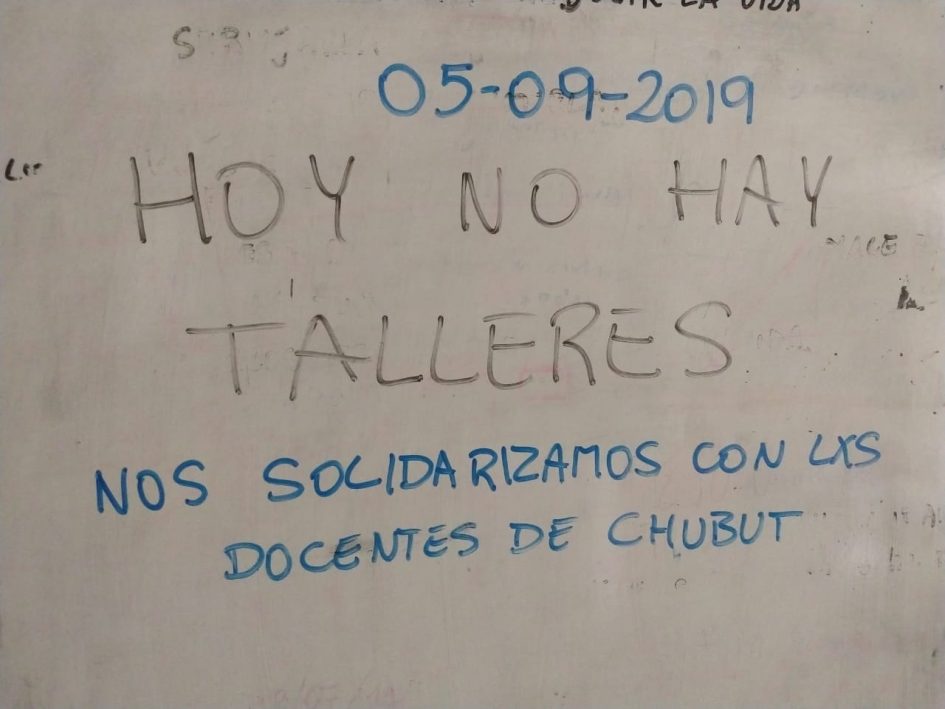 LA VIDA
05-09-2019
HOY NO HAY
TALLERES
NOS SOLIDARIZAMOS CON LXS
DOCENTES DE CHUBUT